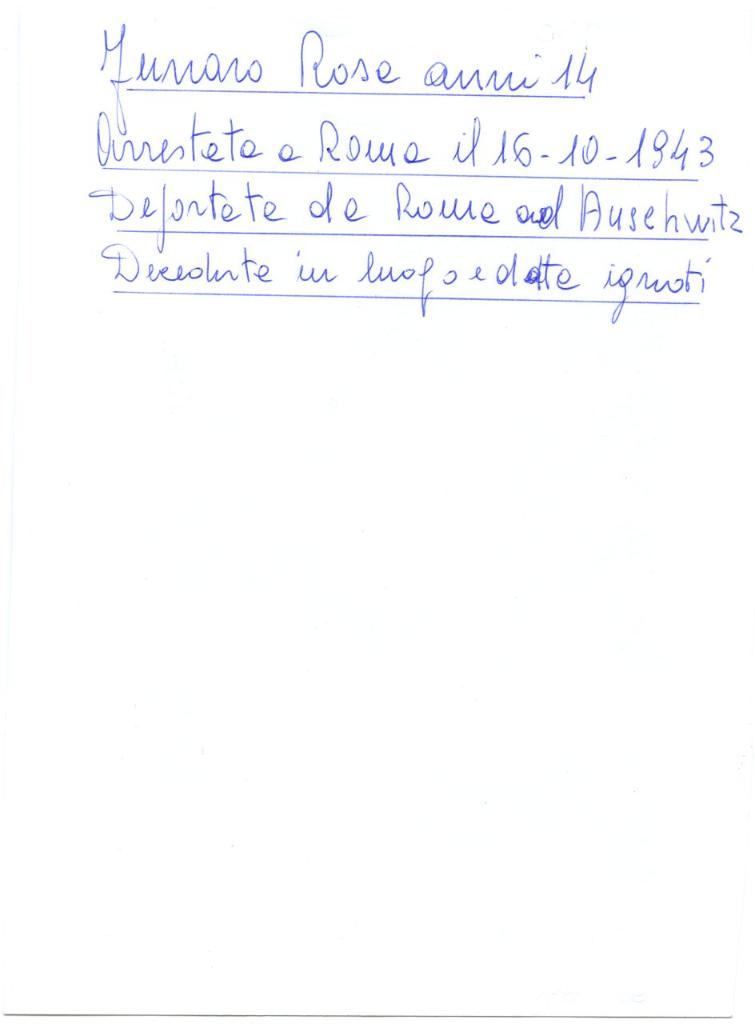 Funaro Rosa anni 14
Arrestata a Roma il 16-10-1943
Deportata da Roma ad Auschwitz
Deceduta in luogo e data ignoti